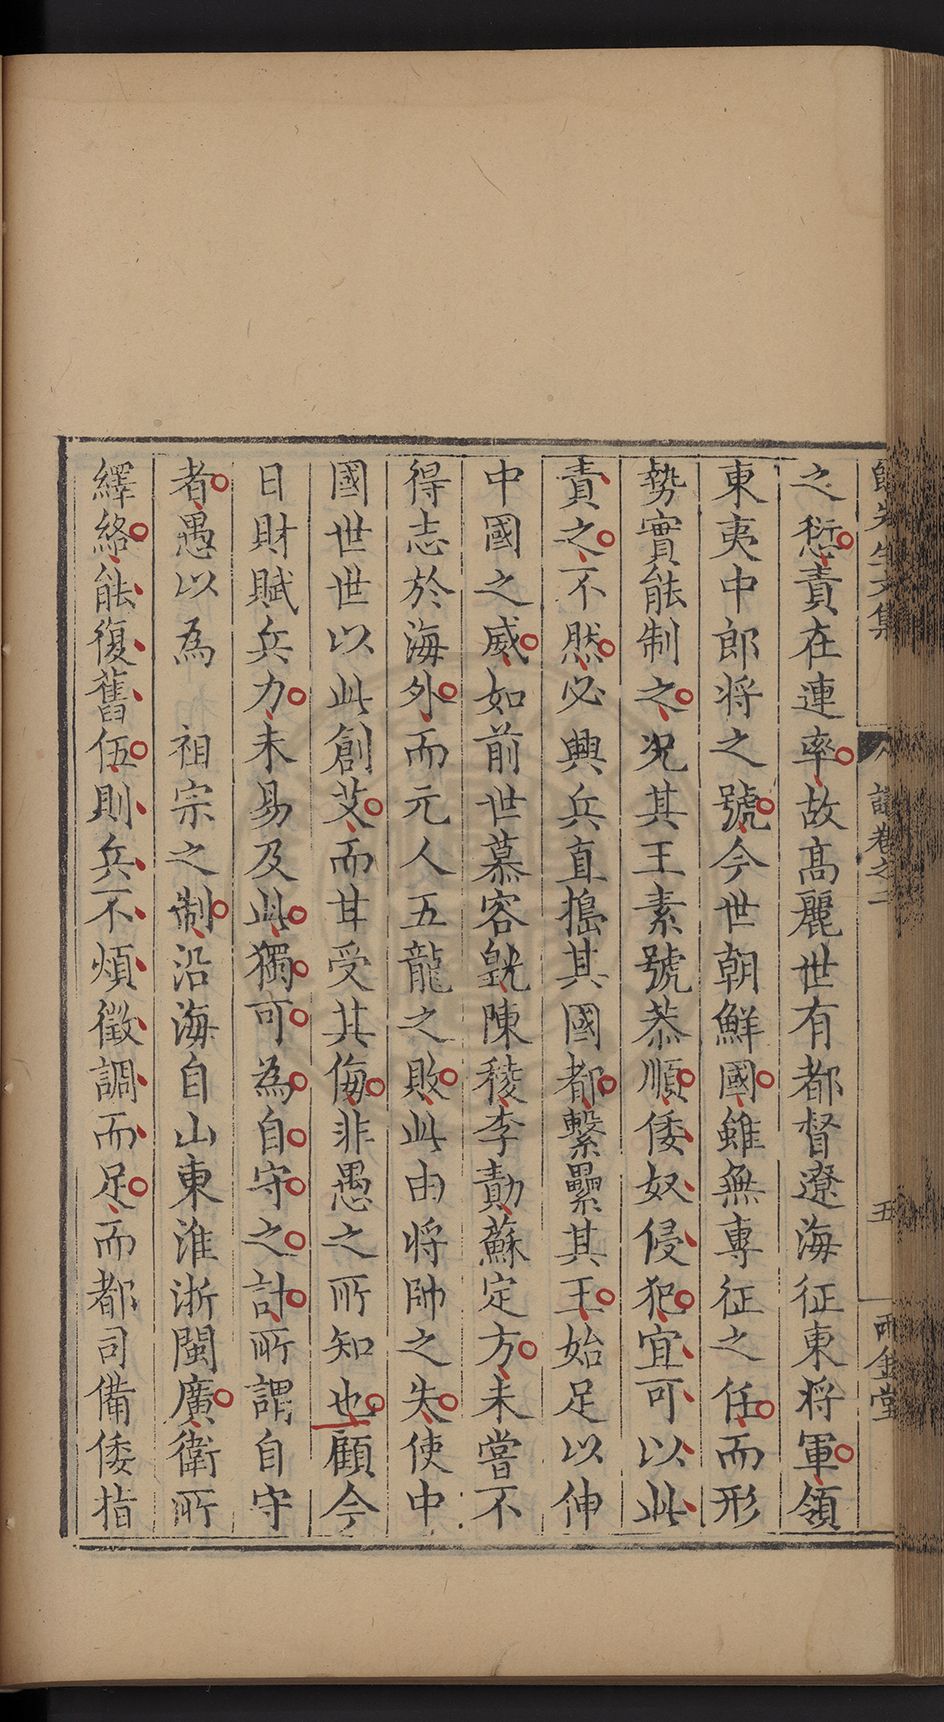 歸先生文集
議卷之二
五
雨金堂
之愆責在連率故高麗世有都督遼海征東将軍領
東夷中郎将之號今世朝鮮國雖無專征之任而形
勢實能制之况其王素號恭順倭奴侵犯宜可以此
責之不然必興兵直搗其國都繫纍其王始足以伸
中國之威如前世慕容皝陳稜李勣蘇定方未嘗不
得志於海外而元人五龍之敗此由将帥之失使中
國世世以此創艾而甘受其侮非愚之所知也顧今
日財賦兵力未易及此獨可為自守之計所謂自守
者愚以為 祖宗之制沿海自山東淮浙閩廣衛所
繹絡能復舊伍則兵不煩徵調而足而都司備倭指